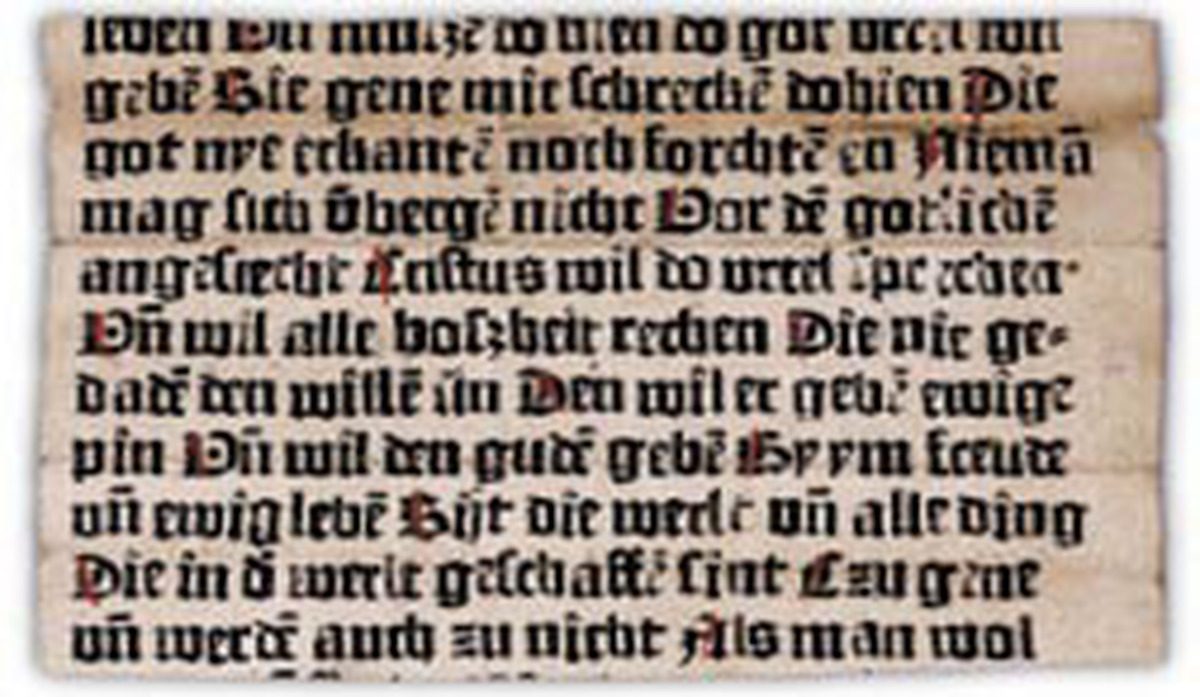 leben Vñ muſze do hien do got vrteil wil
gebē Sie gene mit ſchreckē dohien Die
got nye erkantē noch forchtē en Niemā
mag ſich v̄bergē nicht Vor dē gotlichē
angeſiecht Criſtus wil do vrtel ſprechen·
Vñ wil alle boſzheit rechen Die nie ge⸗
dadē den willē ſin Den wil er gebē ewige
pin Vñ wil den gudē gebē By ym freude
vñ ewig lebē Sijt die werlt vñ alle ding
Die in d̄ werlt geſchaffē ſint Czu gene
vñ werdē auch zu nicht Als man wol